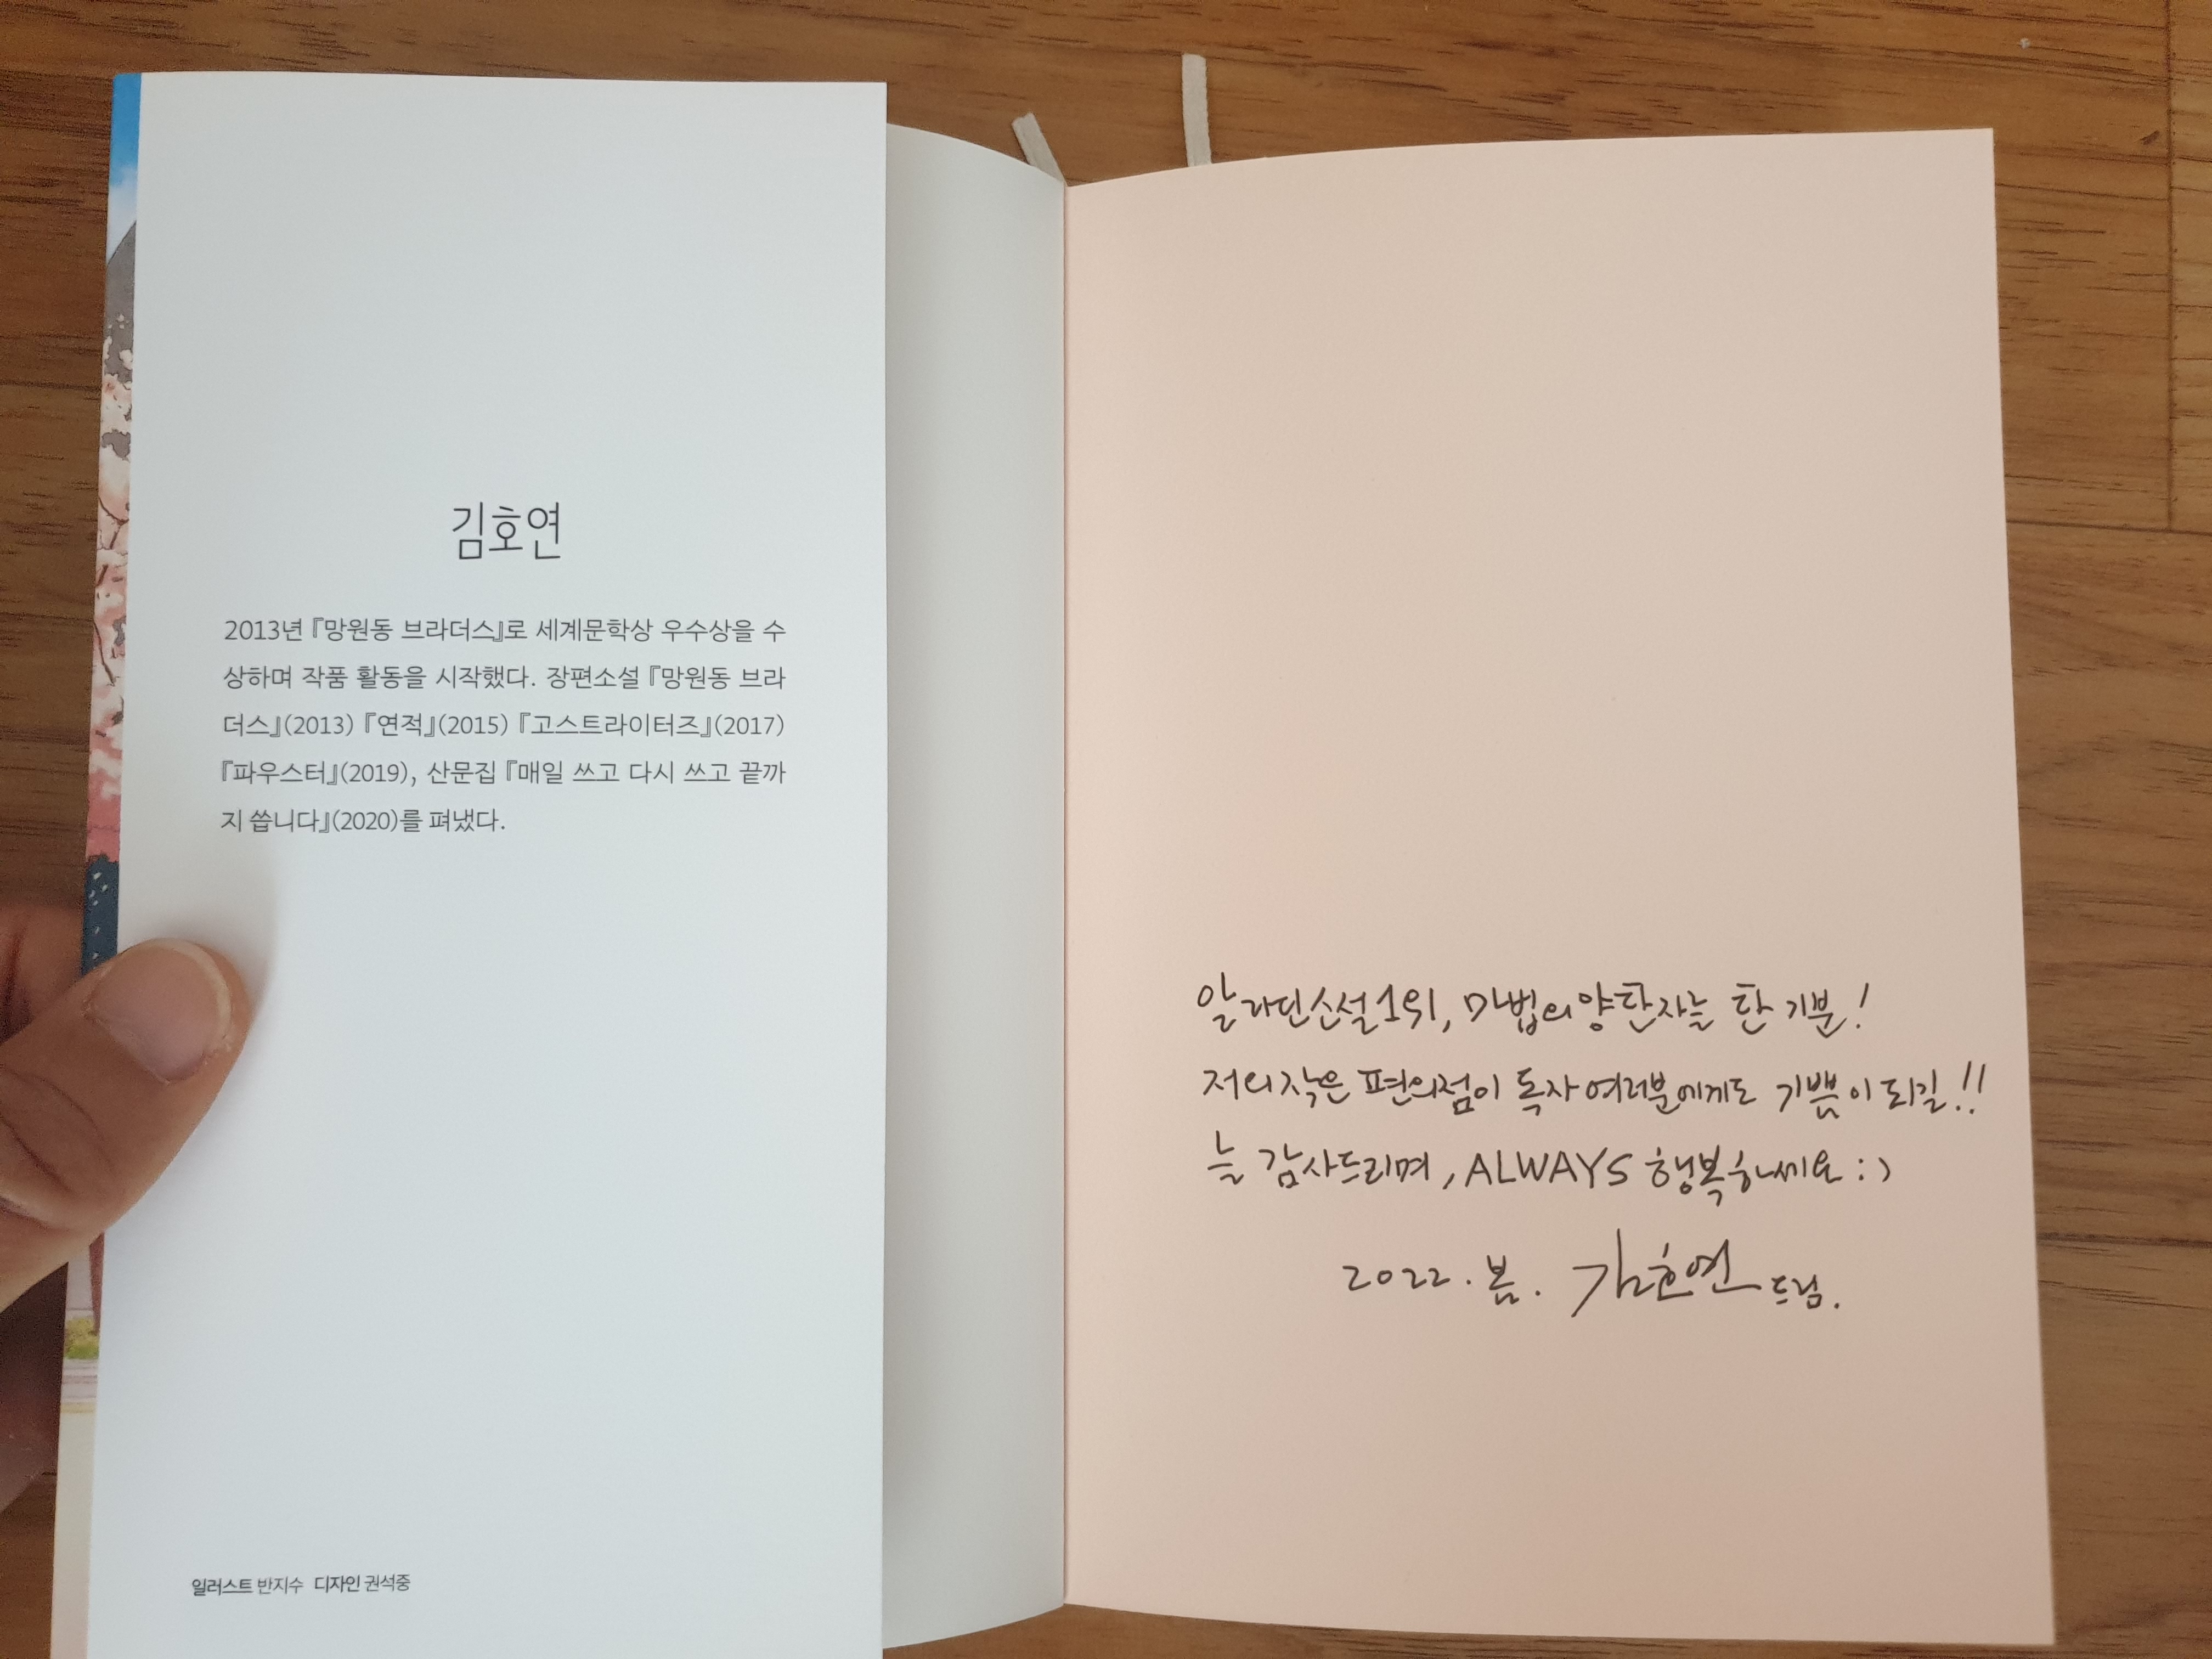 김호연
2013년 『망원동 브라더스』로 세계문학상 우수상을 수
상하며 작품 활동을 시작했다. 장편소설 『망원동 브라
더스』(2013) 『연적』(2015) 『고스트라이터즈』(2017)
『파우스터』(2019), 산문집 『매일 쓰고 다시 쓰고 끝까
지 씁니다』(2020)를 펴냈다.
일러스트 반지수 디자인 권석중
알라딘 소설 1위, 마법의 양탄자를 탄 기분!
저의 작은 편의점이 독자 여러분에게도 기쁨이 되길!!
늘 감사드리며, ALWAYS 행복하세요 :)
2022. 봄. 김호연 드림.